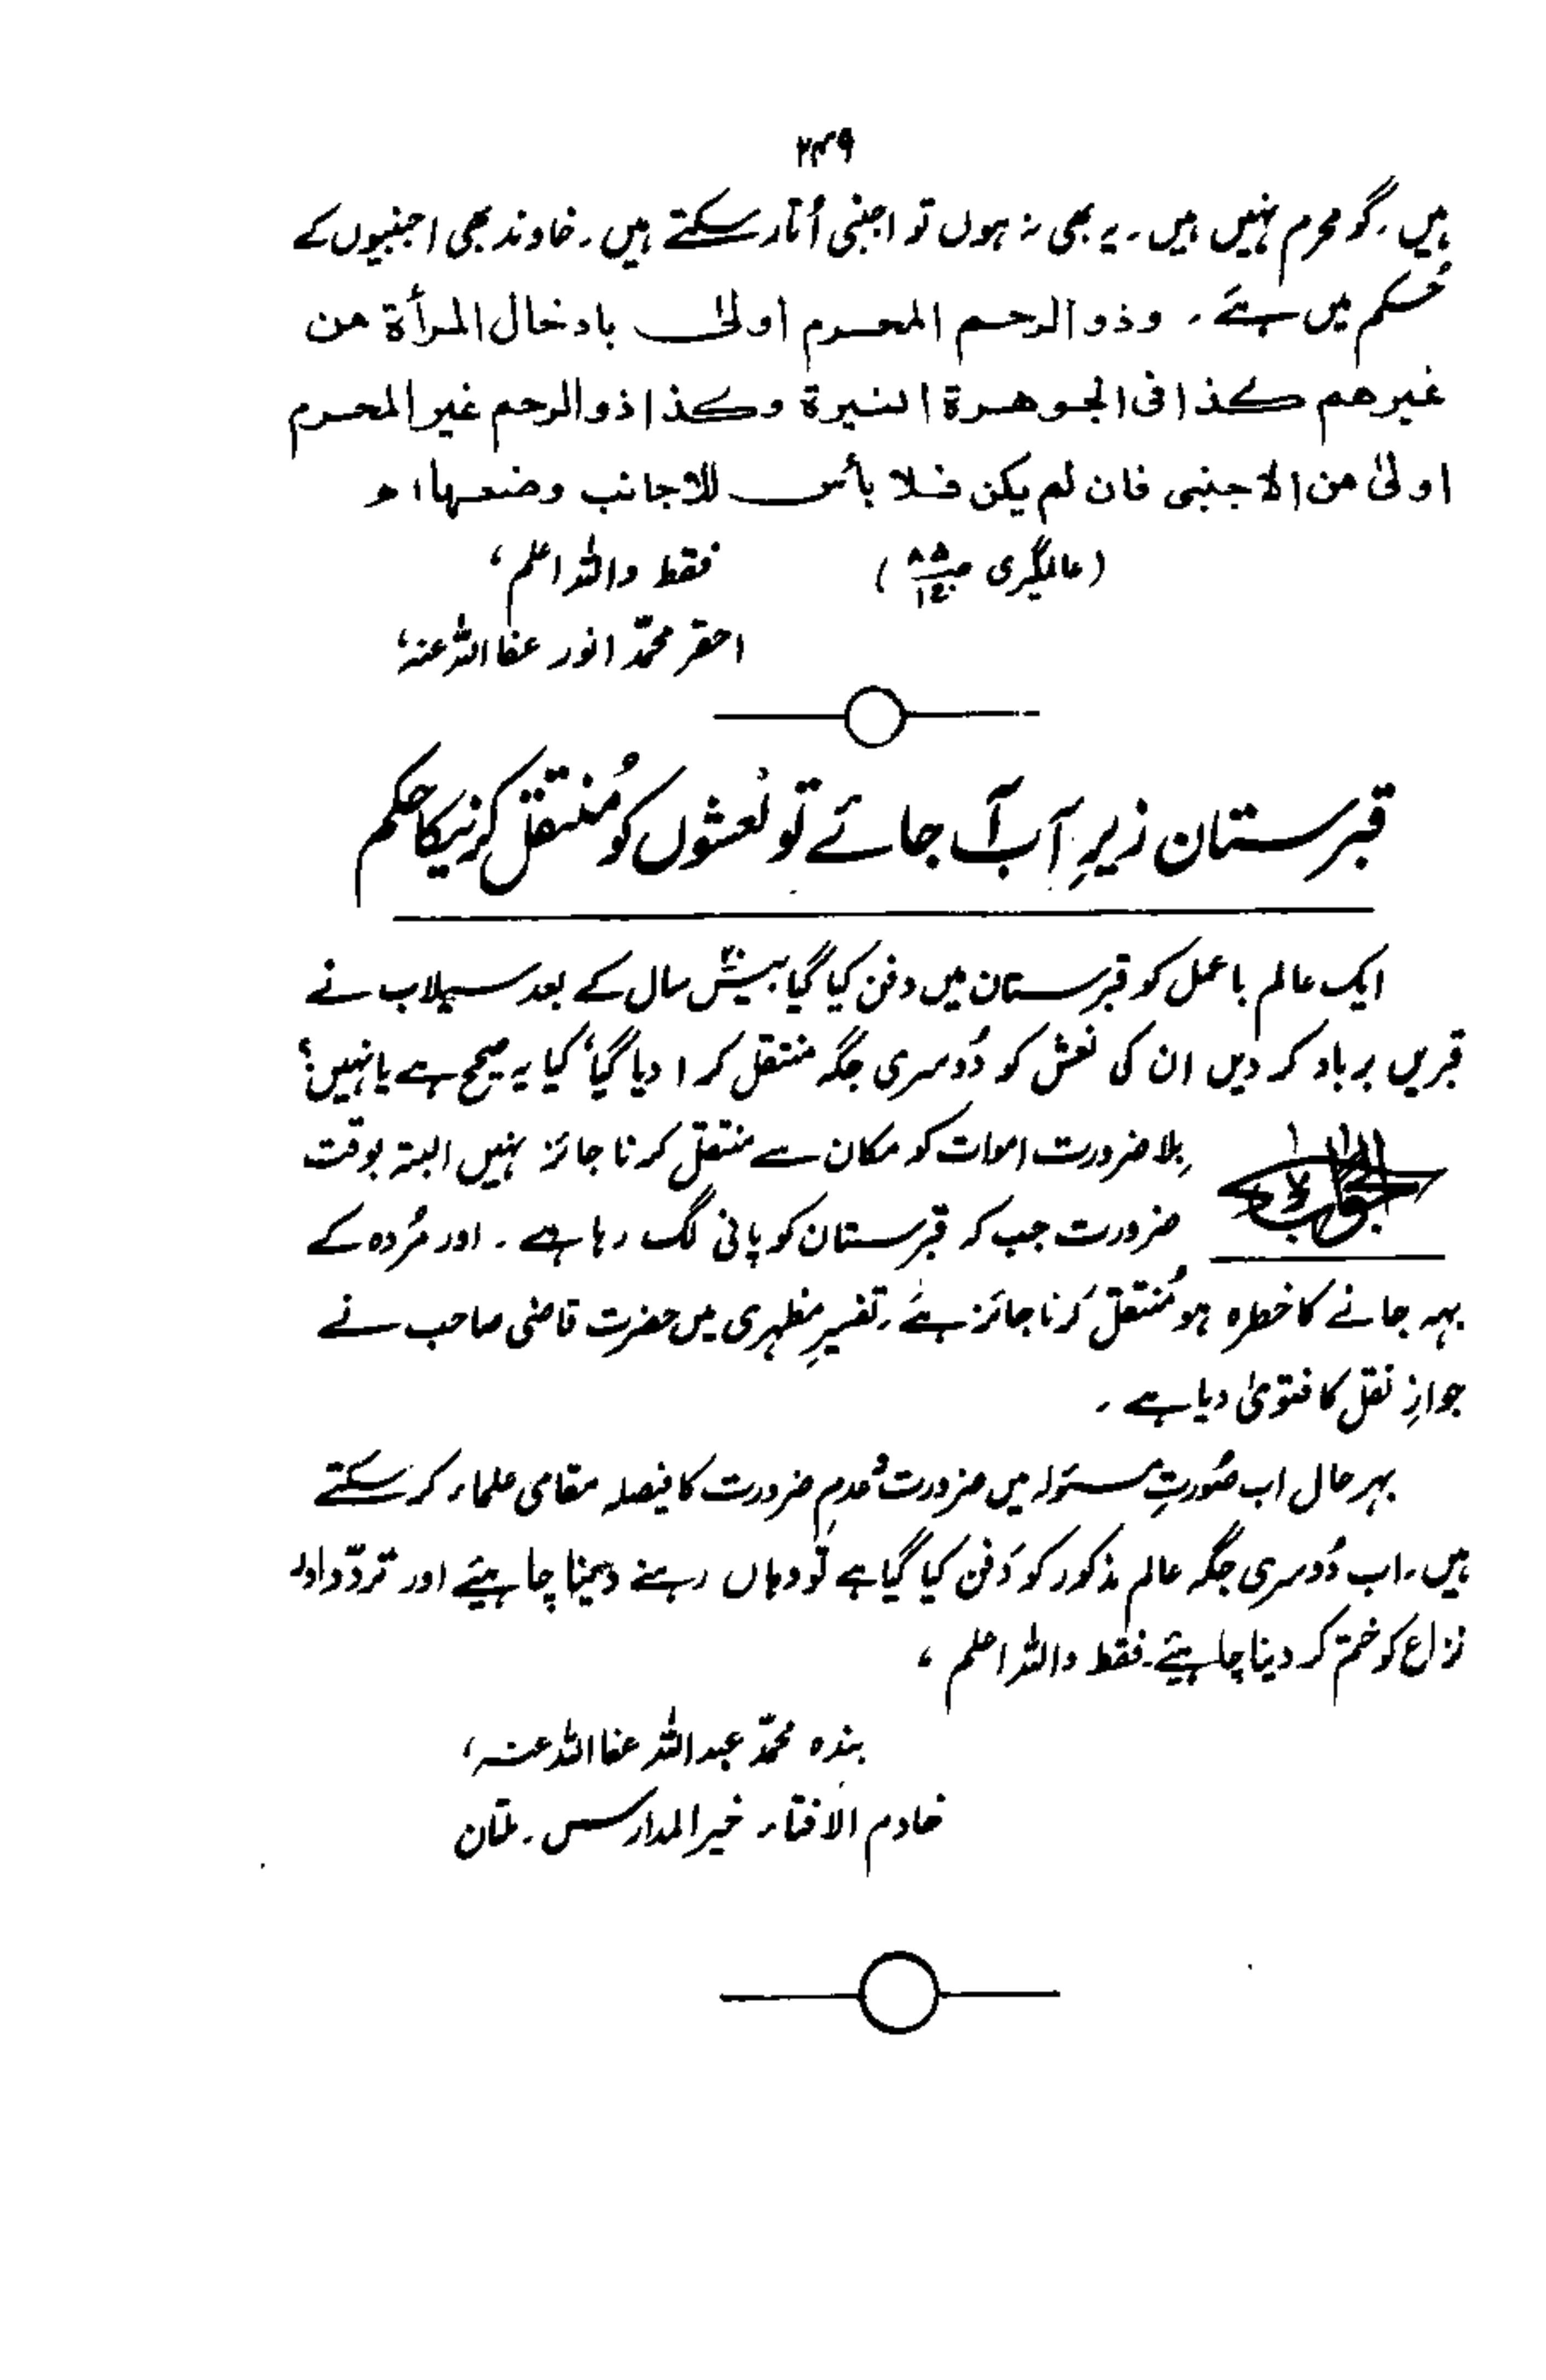 ۲۳۹
ہیں۔ گو محرم نہیں ہیں۔ یہ بھی نہ ہوں تو اجنبی اُتار سکتے ہیں۔ خاوند بھی اجنبیوں کے
حُکم میں ہے۔ وذو الرحم المحرم اولیٰ بادخال المرأة من
غیرهم کذا فی الجوهرة النیرة وکذا ذو الرحم غیر المحرم
اولیٰ من الاجنبی فان لم یکن فلا بأس للاجانب وضعها اھ
(عالمگیری ج۱) فقط واللہ اعلم،
احقر محمّد انور عفا اللہ عنہ،
قبرستان زیرِ آب آ جائے تو نعشوں کو مُنتقل کرنیکا حکم
ایک عالم باعمل کو قبرستان میں دفن کیا گیا بیس۲۰ سال کے بعد سیلاب نے
قبریں برباد کر دیں ان کی نعش کو دُوسری جگہ منتقل کرا دیا گیا، کیا یہ صحیح ہے یا نہیں؟
الجواب بِلا ضرورت اموات کو مکان سے منتقل کرنا جائز نہیں البتہ بوقت
ضرورت جب کہ قبرستان کو پانی لگ رہا ہے۔ اور مُردہ کے
بہہ جانے کا خطرہ ہو مُنتقل کرنا جائز ہے۔ تفسیرِ مظہری میں حضرت قاضی صاحب نے
جوازِ نقل کا فتویٰ دیا ہے۔
بہر حال اب صُورتِ مسئولہ میں ضرورت و عدمِ ضرورت کا فیصلہ مقامی علماء کر سکتے
ہیں۔ اب دُوسری جگہ عالم مذکور کو دَفن کیا گیا ہے تو وہاں رہنے دینا چاہیئے اور تردّد اور
نزاع کو ختم کر دینا چاہیئے۔ فقط واللہ اعلم،
بندہ محمّد عبداللہ عفا اللہ عنہ،
خادم الافتاء خیر المدارس۔ ملتان